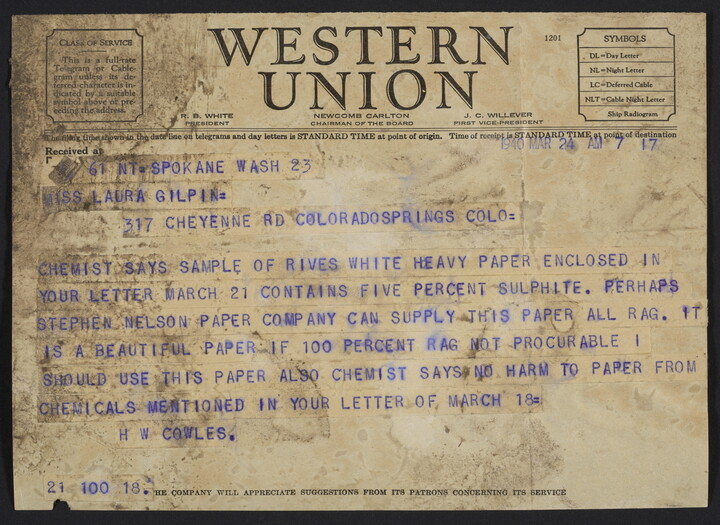 CLASS OF SERVICE
This is a full-rate
Telegram or Cable-
gram unless its de-
ferred character is in-
dicated by a suitable
symbol above or pre-
ceding the address.
WESTERN
UNION
1201
SYMBOLS
DL=Day Letter
NL=Night Letter
LC=Deferred Cable
NLT=Cable Night Letter
Ship Radiogram
R. B. WHITE
PRESIDENT
NEWCOMB CARLTON
CHAIRMAN OF THE BOARD
J. C. WILLEVER
FIRST VICE-PRESIDENT
time shown in the date line on telegrams and day letters is STANDARD TIME at point of origin. Time of receipt is STANDARD TIME at point of destination
Received at
1940 MAR 24 AM 7 17
61 NT=SPOKANE WASH 23
MISS LAURA GILPIN=
317 CHEYENNE RD COLORADOSPRINGS COLO=
CHEMIST SAYS SAMPLE OF RIVES WHITE HEAVY PAPER ENCLOSED IN
YOUR LETTER MARCH 21 CONTAINS FIVE PERCENT SULPHITE. PERHAPS
STEPHEN NELSON PAPER COMPANY CAN SUPPLY THIS PAPER ALL RAG. IT
IS A BEAUTIFUL PAPER IF 100 PERCENT RAG NOT PROCURABLE I
SHOULD USE THIS PAPER ALSO CHEMIST SAYS NO HARM TO PAPER FROM
CHEMICALS MENTIONED IN YOUR LETTER OF MARCH 18=
H W COWLES.
21 100 18.
THE COMPANY WILL APPRECIATE SUGGESTIONS FROM ITS PATRONS CONCERNING ITS SERVICE